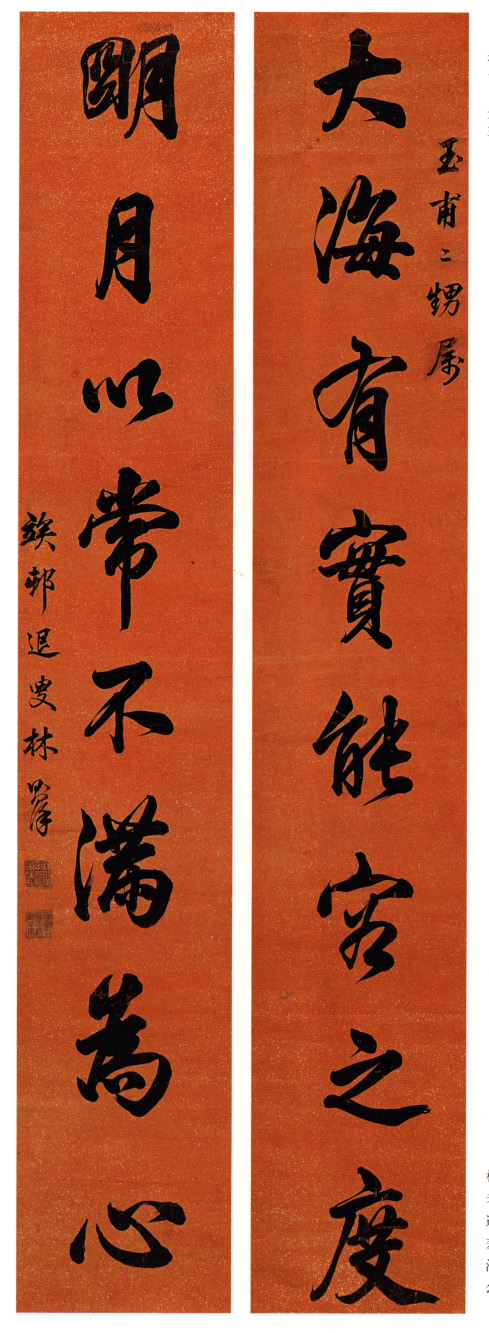 玉甫二甥属
大海有實能容之度
明月以常不滿為心
竢邨退叟林則徐